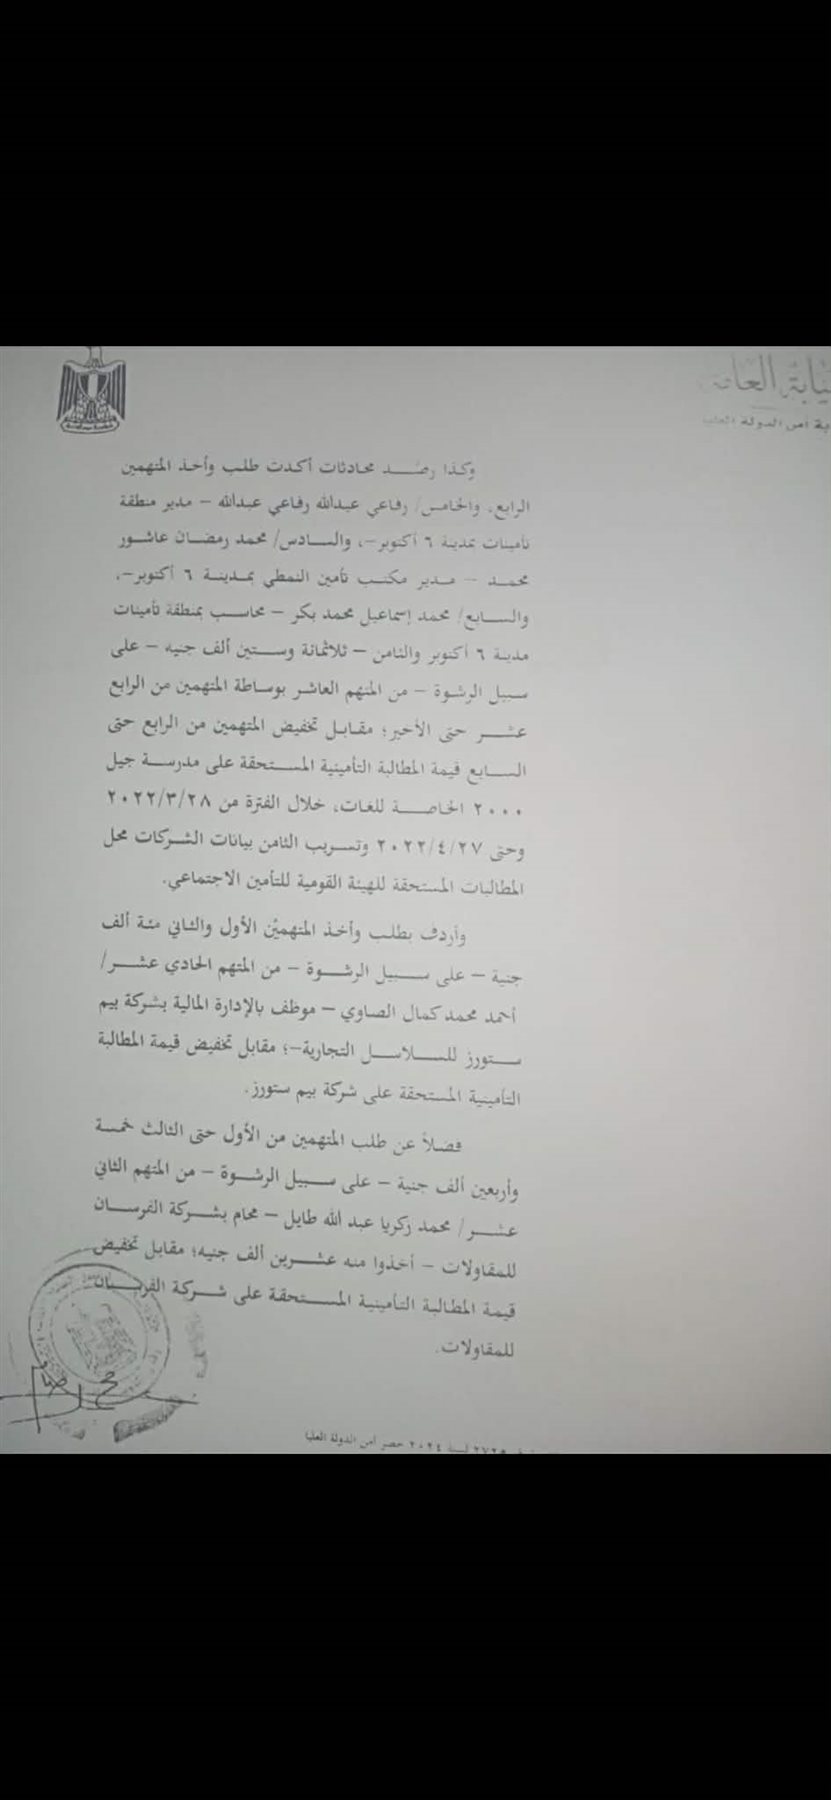 النيابة العامة
نيابة أمن الدولة العليا
وكذا رصد محادثات أكدت طلب وأخذ المتهمين
الرابع، والخامس/ رفاعي عبدالله رفاعي عبدالله – مدير منطقة
تأمينات بمدينة ٦ أكتوبر–، والسادس/ محمد رمضان عاشور
محمد – مدير مكتب تأمين النمطي بمدينة ٦ أكتوبر–،
والسابع/ محمد إسماعيل محمد بكر – محاسب بمنطقة تأمينات
مدينة ٦ أكتوبر والثامن – ثلاثمائة وستين ألف جنيه – على
سبيل الرشوة – من المتهم العاشر بوساطة المتهمين من الرابع
عشر حتى الأخير؛ مقابل تخفيض المتهمين من الرابع حتى
السابع قيمة المطالبة التأمينية المستحقة على مدرسة جيل
٢٠٠٠ الخاصة للغات، خلال الفترة من ٢٠٢٢/٣/٢٨
وحتى ٢٠٢٢/٤/٢٧ وتسريب الثامن بيانات الشركات محل
المطالبات المستحقة للهيئة القومية للتأمين الاجتماعي.
وأردف بطلب وأخذ المتهميْن الأول والثاني مئة ألف
جنية – على سبيل الرشوة – من المتهم الحادي عشر/
أحمد محمد كمال الصاوي – موظف بالإدارة المالية بشركة بيم
ستورز للسلاسل التجارية–؛ مقابل تخفيض قيمة المطالبة
التأمينية المستحقة على شركة بيم ستورز.
فضلاً عن طلب المتهمين من الأول حتى الثالث خمسة
وأربعين ألف جنية – على سبيل الرشوة – من المتهم الثاني
عشر/ محمد زكريا عبد الله طايل – محام بشركة الفرسان
للمقاولات – أخذوا منه عشرين ألف جنيه؛ مقابل تخفيض
قيمة المطالبة التأمينية المستحقة على شركة الفرسان
للمقاولات.
لسنة ٢٠٢٤ حصر أمن الدولة العليا